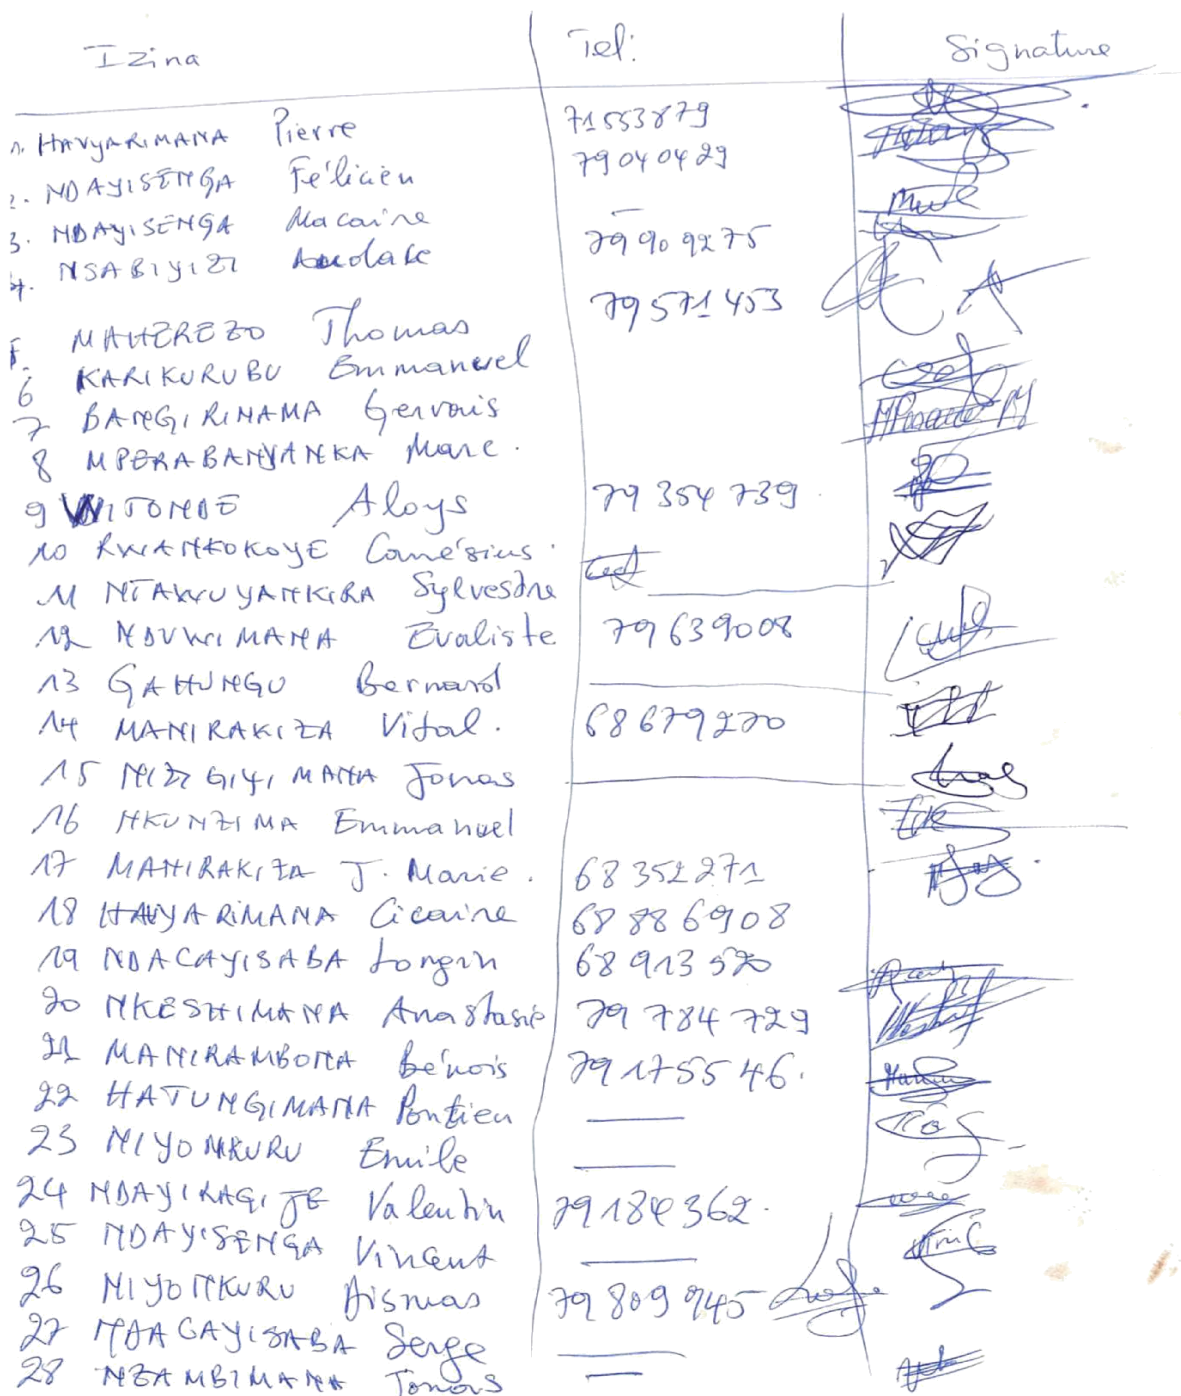 Izina Tel: Signature
1. HAVYARIMANA Pierre 71553879
2. NDAYISENGA Félicien 79040429
3. NDAYISENGA Macaire —
4. NSABIYIZI 79909275
5. MAHEREZO Thomas 79571453
6 KARIKURUBU Emmanuel
7 BANGIRINAMA Gervais
8 MPERABANYANKA Marc.
9 WITONDE Aloys 79354739
10 RWANKOKOYE Canésius.
11 NTAWUYANKIRA Sylvestre
12 NDUWIMANA Evaliste 79639008
13 GAHUNGU Bernard
14 MANIRAKIZA Vital. 68679270
15 NIZIGIYIMANA Jonas
16 NKUNZIMA Emmanuel
17 MANIRAKIZA J. Marie. 68352271
18 HAVYARIMANA Cicaire 68886908
19 NDACAYISABA Longin 68913520
20 NKESHIMANA Anastasie 79784729
21 MANIRAMBONA Bénois 79175546.
22 HATUNGIMANA Pontien —
23 NIYONKURU Emile —
24 NDAYIRAGIJE Valentin 79184362.
25 NDAYISENGA Vincent —
26 NIYONKURU Dismas 79809945
27 NDACAYISABA Serge —
28 NZAMBIMANA Jonas —